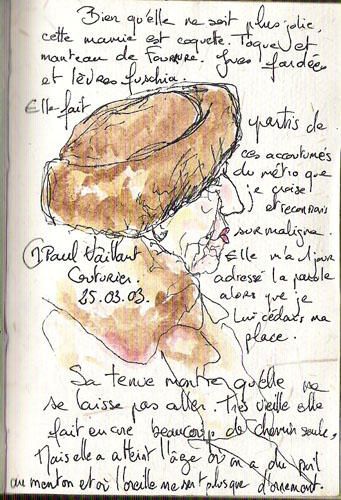 Bien qu'elle ne soit plus jolie,
cette mamie est coquette. Toque et
manteau de Fourrure. Joues fardées
et lèvres fuschia.
Elle fait
partis de
ces accoutumés
du métro que
je croise
et reconnais
sur ma ligne.
Elle m'a 1 jour
adressé la parole
alors que je
lui cédais ma
place.
P. Vaillant
Couturier.
25.03.03.
Sa tenue montre qu'elle ne
se laisse pas aller. Très vieille elle
fait encore beaucoup de chemin seule,
Mais elle a atteint l'âge où on a du poil
au menton et où l'oreille ne sert plus que d'ornement.